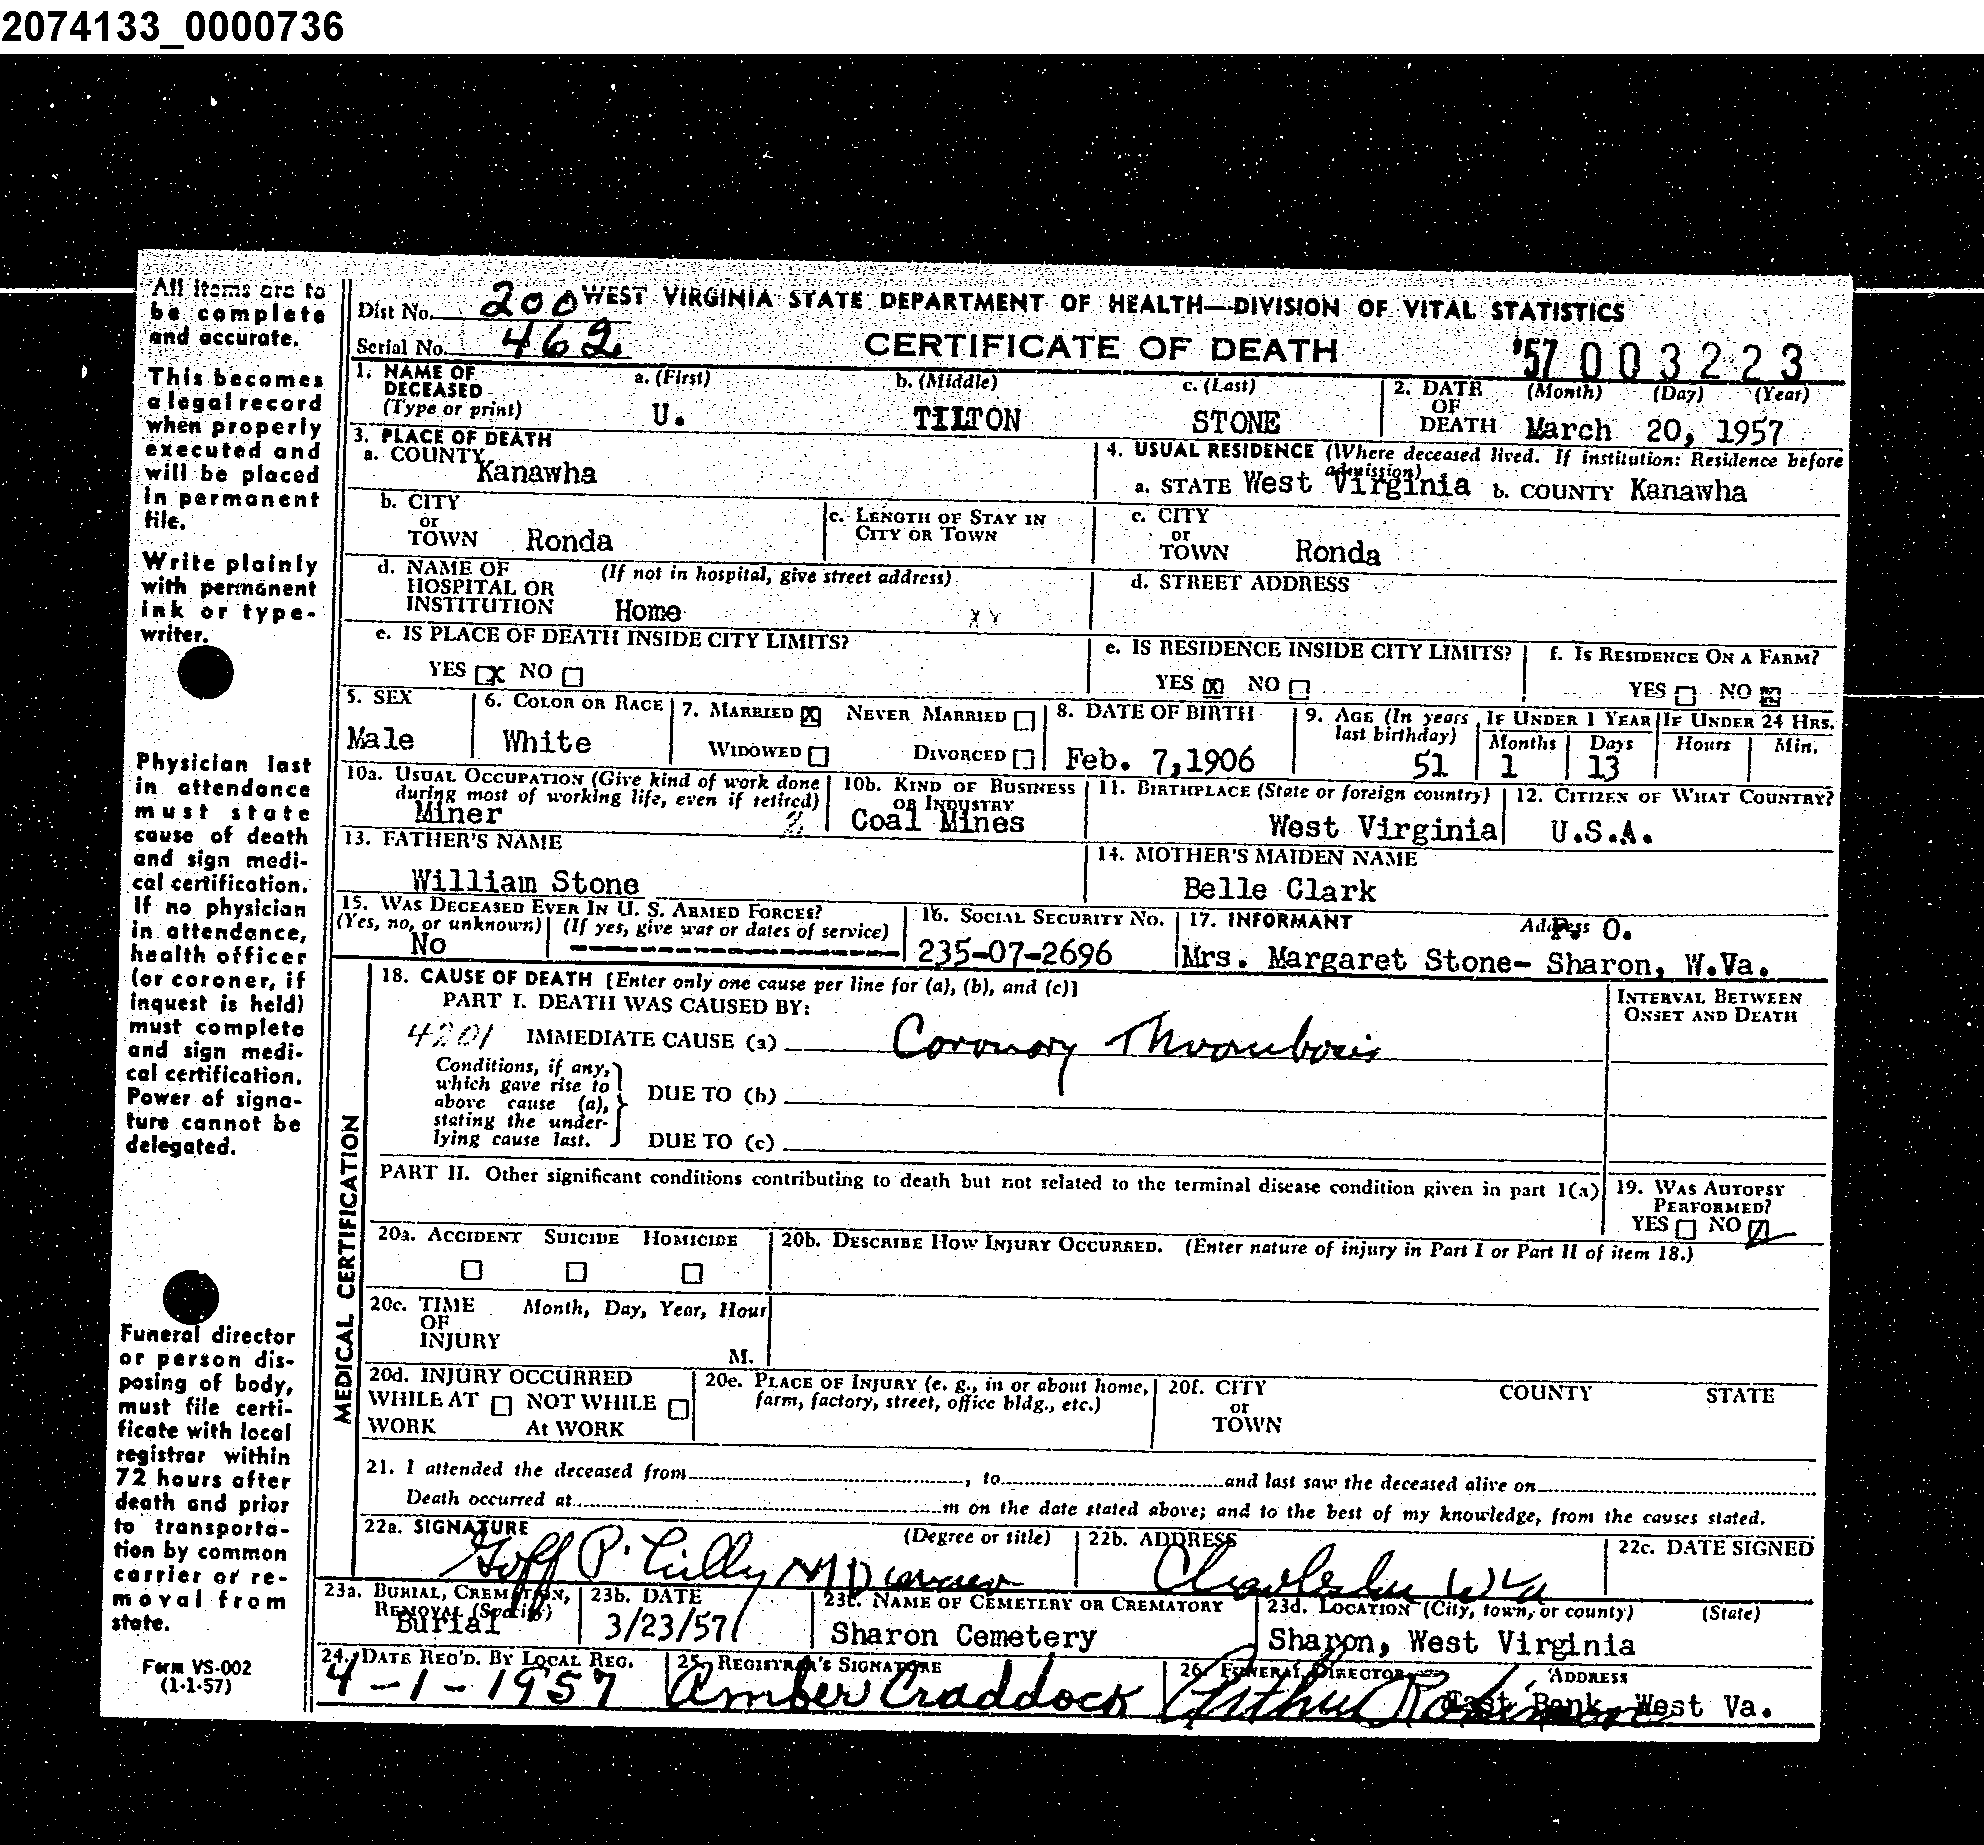 2074133_0000736
All items are to
be complete
and accurate.
This becomes
a legal record
when properly
executed and
will be placed
in permanent
file.
Write plainly
with permanent
ink or type-
writer.
Physician last
in attendance
must state
cause of death
and sign medi-
cal certification.
If no physician
in attendance,
health officer
(or coroner, if
inquest is held)
must complete
and sign medi-
cal certification.
Power of signa-
ture cannot be
delegated.
Funeral director
or person dis-
posing of body,
must file certi-
ficate with local
registrar within
72 hours after
death and prior
to transporta-
tion by common
carrier or re-
moval from
state.
Form VS-002
(1-1-57)
Dist No. 200 WEST VIRGINIA STATE DEPARTMENT OF HEALTH—DIVISION OF VITAL STATISTICS
Serial No. 462 CERTIFICATE OF DEATH '57 003223
1. NAME OF DECEASED (Type or print) a. (First) b. (Middle) c. (Last) 2. DATE OF DEATH (Month) (Day) (Year)
U. TILTON STONE March 20, 1957
3. PLACE OF DEATH
a. COUNTY Kanawha
4. USUAL RESIDENCE (Where deceased lived. If institution: Residence before admission)
a. STATE West Virginia b. COUNTY Kanawha
b. CITY or TOWN Ronda c. LENGTH OF STAY IN CITY OR TOWN c. CITY or TOWN Ronda
d. NAME OF HOSPITAL OR INSTITUTION (If not in hospital, give street address) Home xx d. STREET ADDRESS
e. IS PLACE OF DEATH INSIDE CITY LIMITS? e. IS RESIDENCE INSIDE CITY LIMITS? f. IS RESIDENCE ON A FARM?
YES X NO YES X NO YES NO X
5. SEX 6. COLOR OR RACE 7. MARRIED X NEVER MARRIED 8. DATE OF BIRTH 9. AGE (In years last birthday) IF UNDER 1 YEAR IF UNDER 24 HRS.
WIDOWED DIVORCED Months Days Hours Min.
Male White Feb. 7,1906 51 1 13
10a. USUAL OCCUPATION (Give kind of work done during most of working life, even if retired) 10b. KIND OF BUSINESS OR INDUSTRY 11. BIRTHPLACE (State or foreign country) 12. CITIZEN OF WHAT COUNTRY?
Miner 2 Coal Mines West Virginia U.S.A.
13. FATHER'S NAME 14. MOTHER'S MAIDEN NAME
William Stone Belle Clark
15. WAS DECEASED EVER IN U. S. ARMED FORCES? 16. SOCIAL SECURITY NO. 17. INFORMANT Address P. O.
(Yes, no, or unknown) (If yes, give war or dates of service)
No ------------------ 235-07-2696 Mrs. Margaret Stone- Sharon, W.Va.
MEDICAL CERTIFICATION
18. CAUSE OF DEATH [Enter only one cause per line for (a), (b), and (c)] INTERVAL BETWEEN ONSET AND DEATH
PART I. DEATH WAS CAUSED BY:
4201 IMMEDIATE CAUSE (a) Coronary Thrombosis
Conditions, if any, which gave rise to above cause (a), stating the under-lying cause last.
DUE TO (b)
DUE TO (c)
PART II. Other significant conditions contributing to death but not related to the terminal disease condition given in part 1(a) 19. WAS AUTOPSY PERFORMED?
YES NO
20a. ACCIDENT SUICIDE HOMICIDE 20b. DESCRIBE HOW INJURY OCCURRED. (Enter nature of injury in Part I or Part II of item 18.)
20c. TIME OF INJURY Month, Day, Year, Hour M.
20d. INJURY OCCURRED 20e. PLACE OF INJURY (e. g., in or about home, farm, factory, street, office bldg., etc.) 20f. CITY or TOWN COUNTY STATE
WHILE AT WORK NOT WHILE At WORK
21. I attended the deceased from , to and last saw the deceased alive on
Death occurred at m on the date stated above; and to the best of my knowledge, from the causes stated.
22a. SIGNATURE (Degree or title) 22b. ADDRESS 22c. DATE SIGNED
Goff P. Lilly MD coroner Charleston WVa
23a. BURIAL, CREMATION, REMOVAL (Specify) 23b. DATE 23c. NAME OF CEMETERY OR CREMATORY 23d. LOCATION (City, town, or county) (State)
Burial 3/23/57 Sharon Cemetery Sharon, West Virginia
24. DATE REC'D. BY LOCAL REG. 25. REGISTRAR'S SIGNATURE 26. FUNERAL DIRECTOR ADDRESS
4-1-1957 Amber Craddock Arthur Robinson East Bank, West Va.